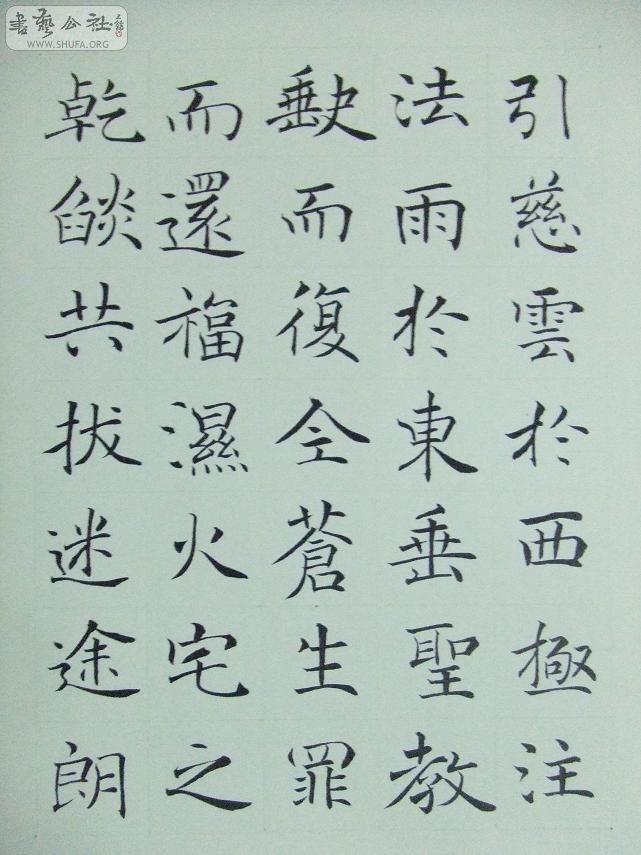 書藝公社
WWW.SHUFA.ORG
引慈雲於西極注
法雨於東垂聖教
缺而復全蒼生罪
而還福濕火宅之
乾燄共拔迷途朗